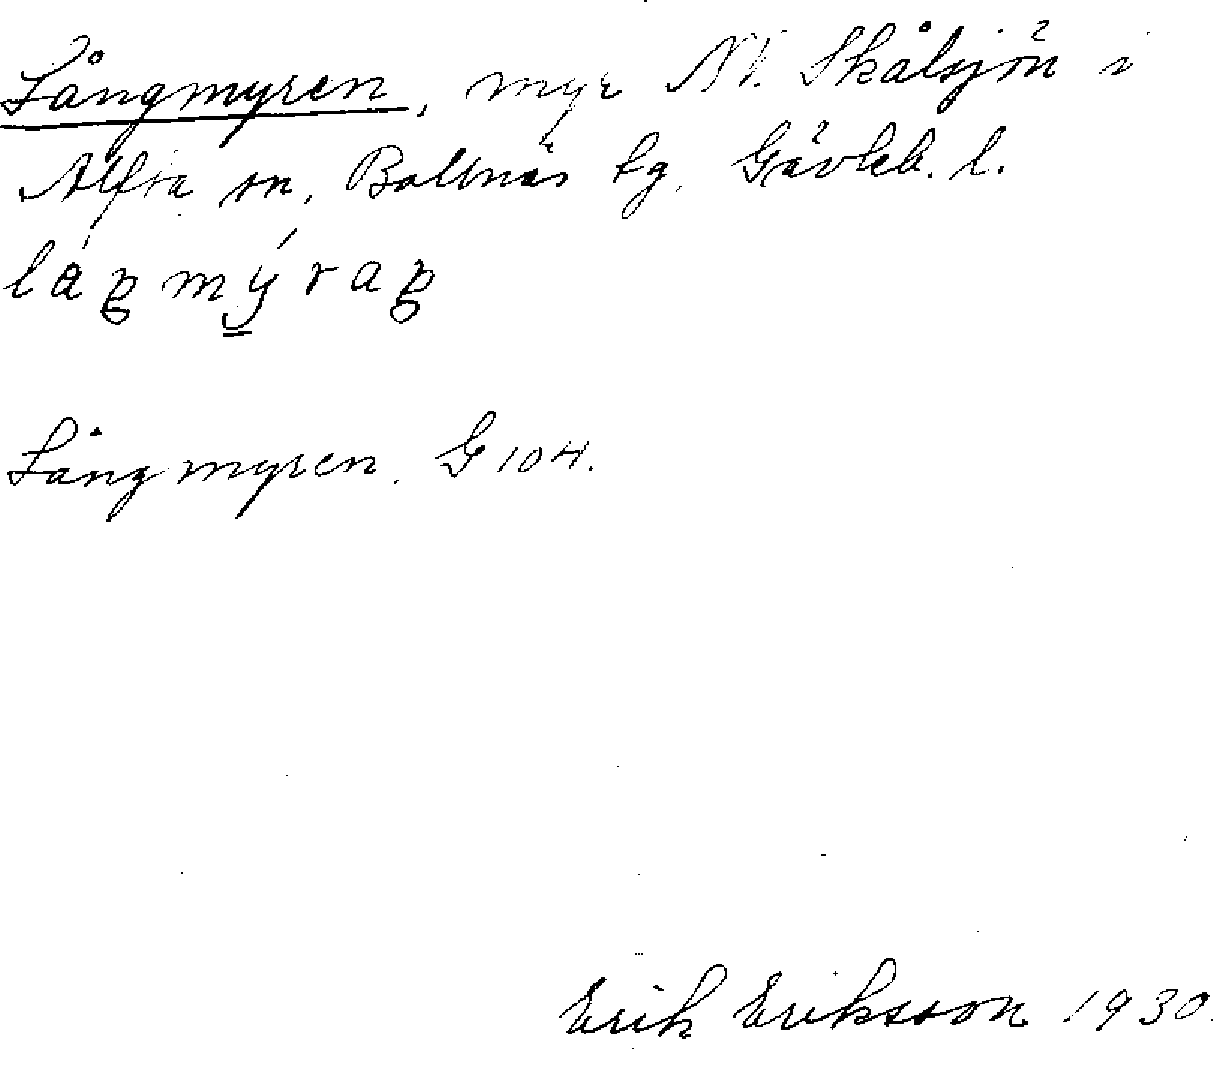 Långmyren, myr NV. Skålsjön i
Alfta sn, Bollnäs tg, Gävleb. l.
Långmyren. G 104.
Erik Eriksson 1930.